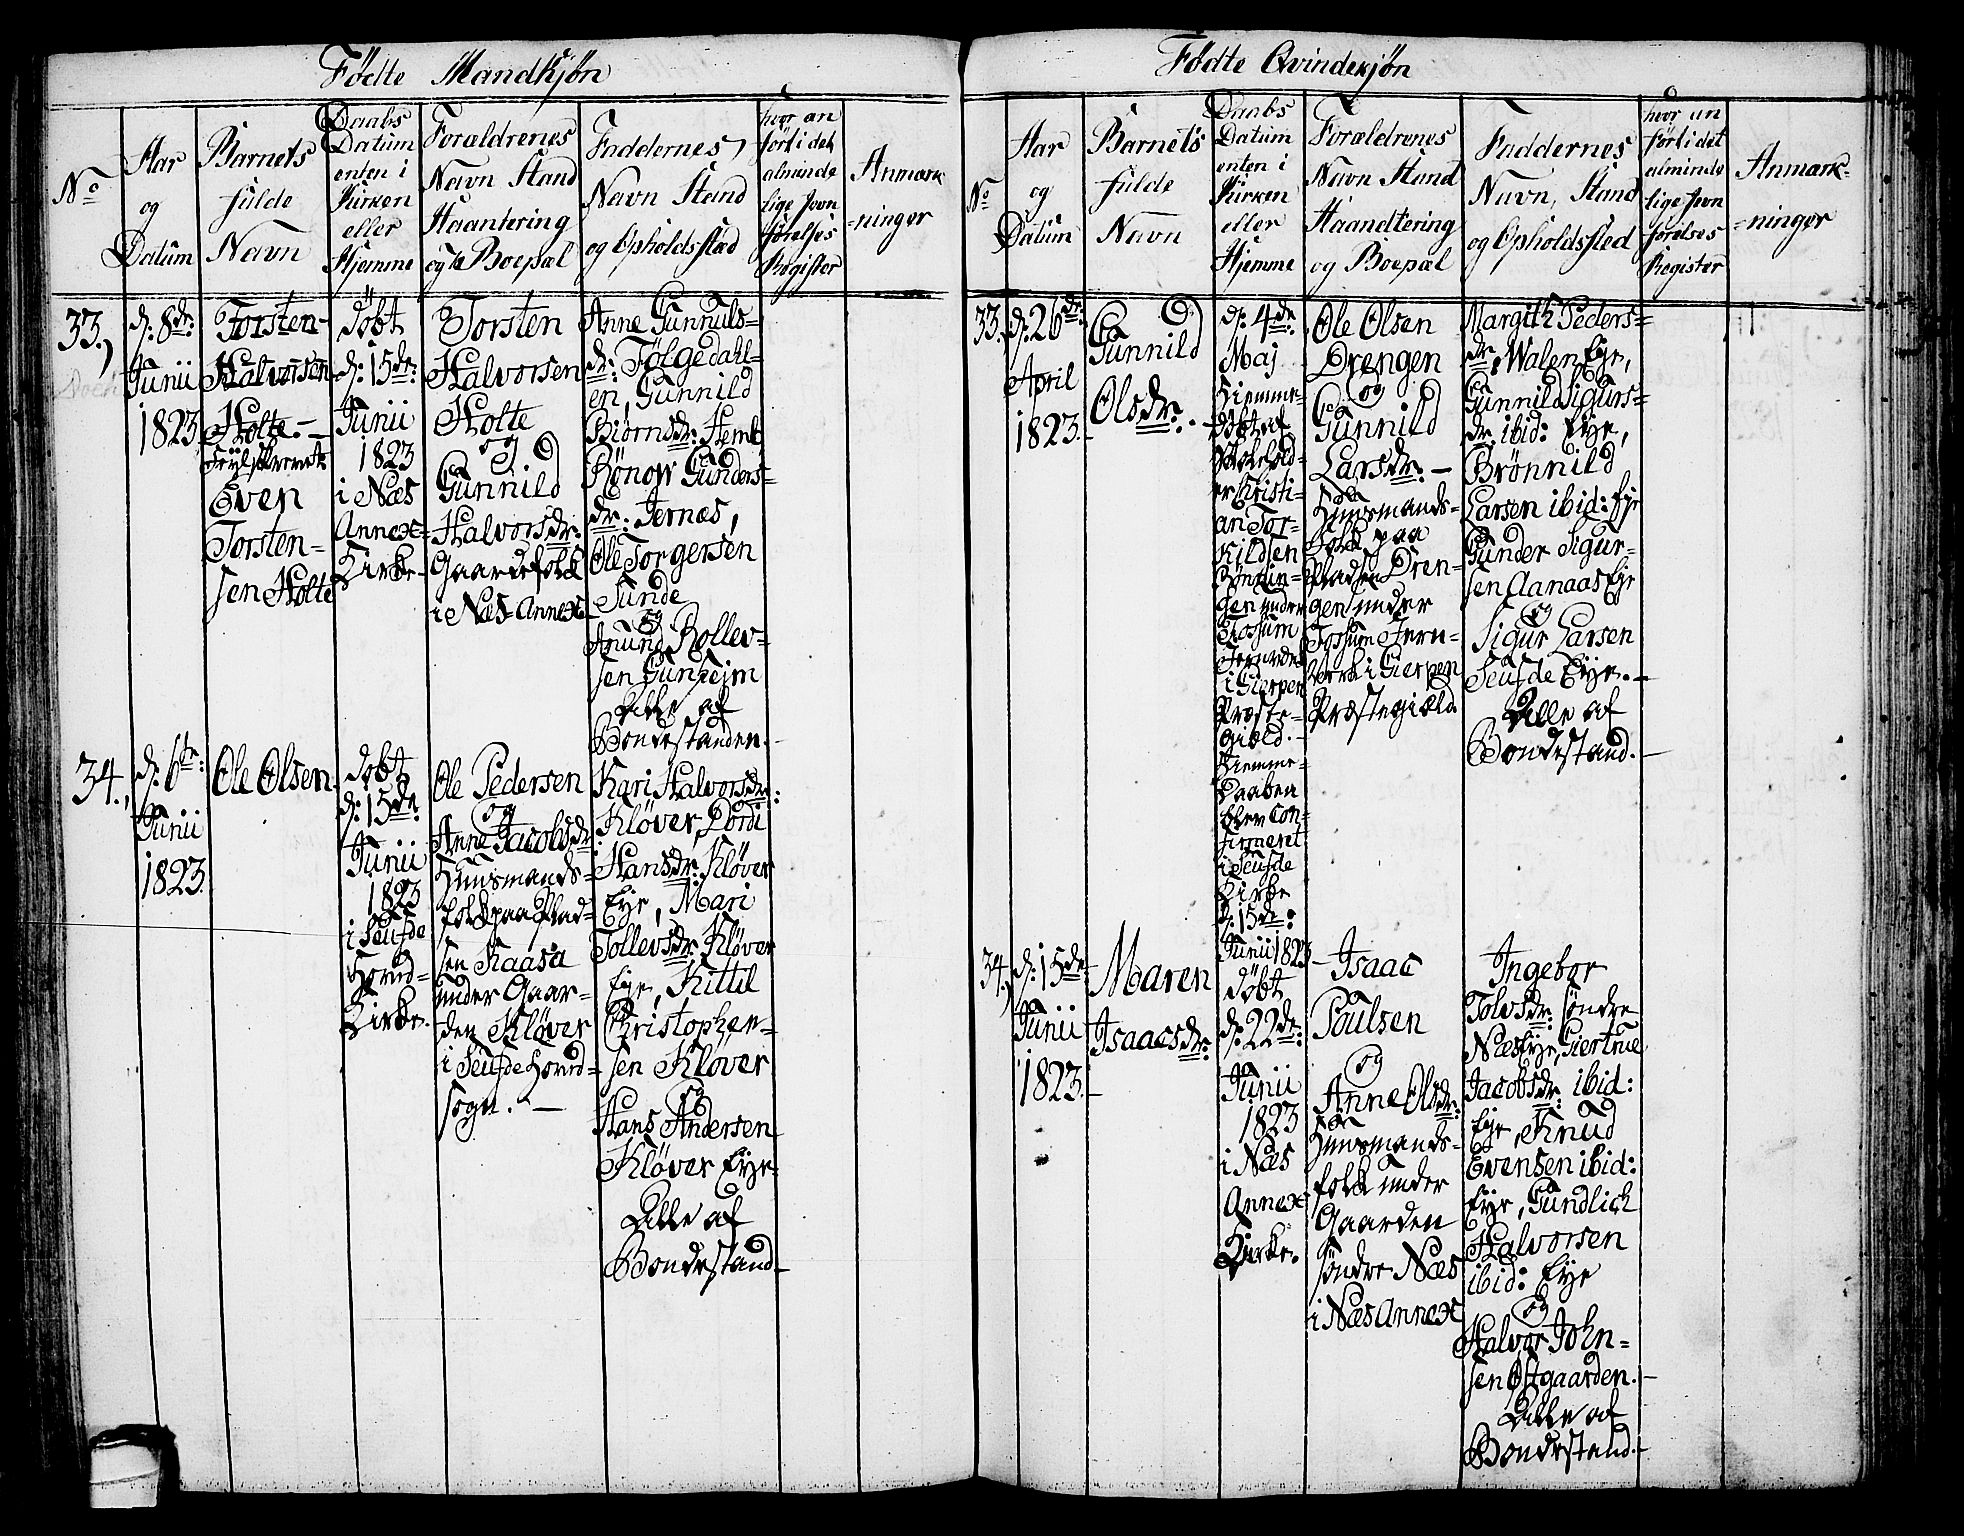 Fødte Mandkjøn
No
Aar
og
Datum
Barnets
fulde
Navn
Daabs
Datum
enten i
Kirken
eller
Hjemme
Forældrenes
Navn Stand
Haantering
og Boepæl
Faddernes
Navn Stand
og Opholdsstæd
hvor an
ført i det
alminde
lige Jevn
førelses
Register
Anmærk
=ninger
33.)
d: 8de:
Junii
1823
Torsten
Halvorsen
Holte.-
Feylskrevet
Even
Torsten-
sen Holte
døbt
d: 15de:
Junii
1823
i Næs
Annex-
Kirke-
Torsten
Halvorsen
Holte
og
Gunnild
Halvorsdr:
Gaardefolk
i Næs Annex
Anne Gunnuls-
dr: Følgedahl-
en, Gunnild
Biørnsdr: Hemb
Rønow Gunders-
dr: Jernæs,
Ole Torgersen
Sunde
og
Anund Rollev-
sen Gunheim
Alle af
Bondestanden.-
34.,
d: 6te:
Junii
1823.
Ole Olsen.
døbt
d: 15de
Junii
1823
i Seufde
Hovid-
Kirke.
Ole Pedersen
og
Anne Jacobsdr:
Huusmands-
folk paa Plad-
sen Kaasa
under Gaar-
den Kløver
i Seufde Hovid-
sogn. -
Kari Halvorsdr:
Kløver, Dordi
Hansdr: Kløver
Eye, Mari
Tollevsdr: Kløver
Eye, Kittil
Christophen-
sen Kløver
og
Hans Andersen
Kløver Eye-
Alle af
Bondestand-
Fødte Qvindekjøn
No
Aar
og
Datum
Barnets
fulde
Navn
Daabs
Datum
enten i
Kirken
eller
Hjemme
Forældrenes
Navn Stand
Haandtering
og Boepæl
Faddernes
Navn, Stand
og Opholdssted
hvor an
ført i det
alminde
lige Jevn
førelses
Register
Anmærk-
=ninger
33.
d: 26de:
April
1823.-
Gunnild
Olsdr:.
d: 4de
Maj
Hiemme-
døbt af
Skolehold-
er Kristi-
an Tor-
kildsen
under
Fossum
i Gierpen
Præste-
giæld.-
Hiemme-
Daaben
blev con-
firmeret
i Seufde
Kirke
d: 15de:
Junii 1823
Ole Olsen
Drengen
og
Gunnild
Larsdr: -
Huusmands-
folk paa
Pladsen Dren-
gen under
Fossum Jern-
Verk i Gierpen
Præstegiæld
Margith Peders-
dr: Walen Eye,
Gunnild Sigurs-
dr: ibid: Eye,
Brønnild
Larsen ibid: Eye
Gunder Sigur-
sen Aanaas Eye
og
Sigur Larsen
Seufde Eye. -
Alle af
Bondestand.-
34.
d: 15de
Junii
1823.-
Maren
Isaacsdr:
døbt
d: 22de:
Junii
1823
i Næs
Annex
Kirke.
Isaac
Poulsen
og
Anne Olsdr:
Huusmands-
folk under
Gaarden
søndre Næs
i Næs Annex
Ingebor
Tolvsdr: søndre
Næs Eye, Giertrue
Jacobsdr: ibid:
Eye, Knud
Evensen ibid:
Eye, Gundlich
Halvorsen
ibid: Eye
og
Halvor John-
sen Østgaarden.-
Alle af
Bondestand.-